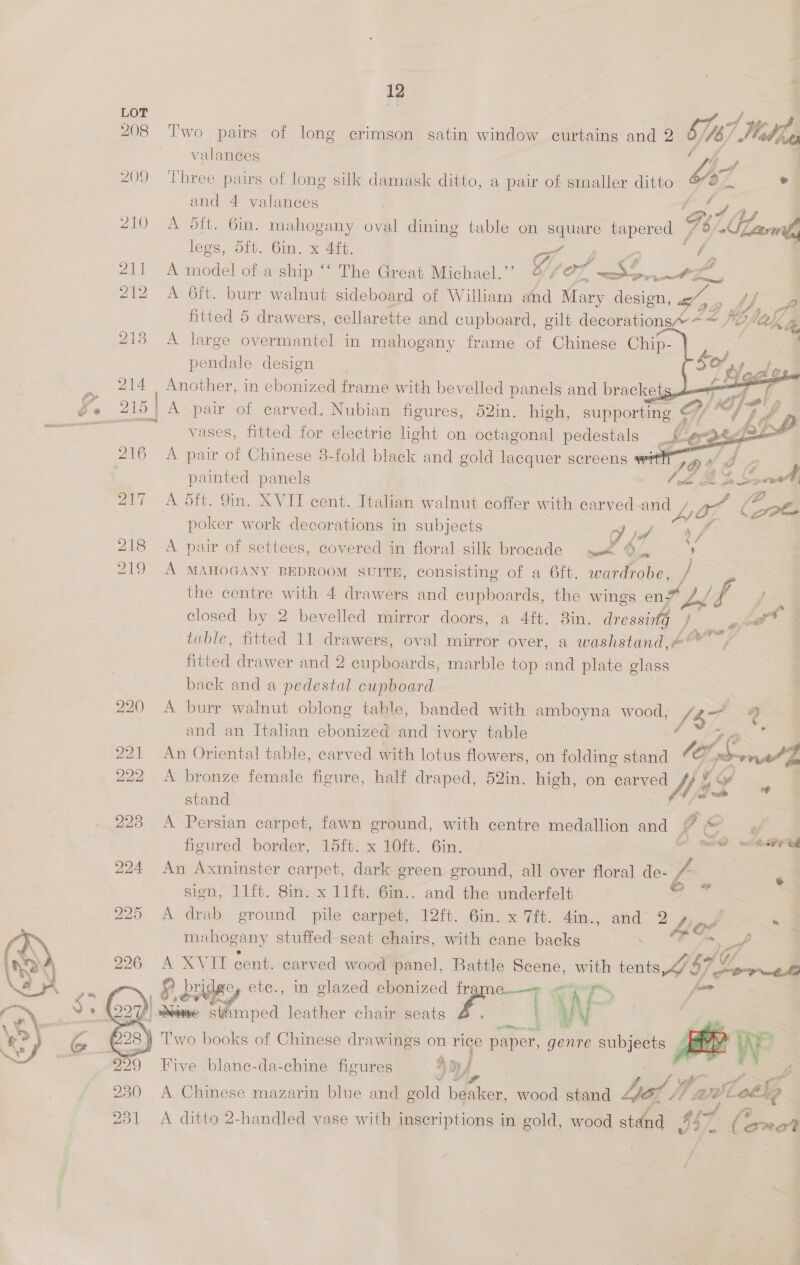 12
LOT
208 Two pairs of long crimson satin window curtains and 2
valances
209 Three pairs of long silk damask ditto, a pair of smaller ditto
and 4 valances
210 A 5ft. 6in. mahogany oval dining table on square tapered
legs, 5ft. 6in. x 4ft.
211 A model of a ship “ The Great Michael.”
212 A 6ft. burr walnut sideboard of William and Mary design,
fitted 5 drawers, cellarette and cupboard, gilt decorations
213 A large overmantel in mahogany frame of Chinese Chip-
pendale design
214 Another, in ebonized frame with bevelled panels and brackets
215 A pair of carved Nubian figures, 52in. high, supporting
vases, fitted for electric light on octagonal pedestals
216 A pair of Chinese 3-fold black and gold lacquer screens with
painted panels
217 A 5ft. 9in. XVII cent. Italian walnut coffer with carved and
poker work decorations in subjects
218 A pair of settees, covered in floral silk brocade
219 A MAHOGANY BEDROOM SUITE, consisting of a 6ft. wardrobe,
the centre with 4 drawers and cupboards, the wings en-
closed by 2 bevelled mirror doors, a 4ft. 3in. dressing
table, fitted 11 drawers, oval mirror over, a washstand,
fitted drawer and 2 cupboards, marble top and plate glass
back and a pedestal cupboard
220 A burr walnut oblong table, banded with amboyna wood,
and an Italian ebonized and ivory table
221 An Oriental table, carved with lotus flowers, on folding stand
222 A bronze female figure, half draped, 52in. high, on carved
stand
223 A Persian carpet, fawn ground, with centre medallion and
figured border, 15ft. x 10ft. 6in.
224 An Axminster carpet, dark green ground, all over floral de-
sign, 11ft. 8in. x 11ft. 6in., and the underfelt
225 A drab ground pile carpet, 12ft. 6in. x 7ft. 4in., and 2
mahogany stuffed seat chairs, with cane backs
226 A XVII cent. carved wood panel, Battle Scene, with tents,
bridge, etc., in glazed ebonized frame
227 Nine stamped leather chair seats
228 Two books of Chinese drawings on rice paper, genre subjects
229 Five blanc-da-chine figures
230 A Chinese mazarin blue and gold beaker, wood stand
231 A ditto 2-handled vase with inscriptions in gold, wood stand